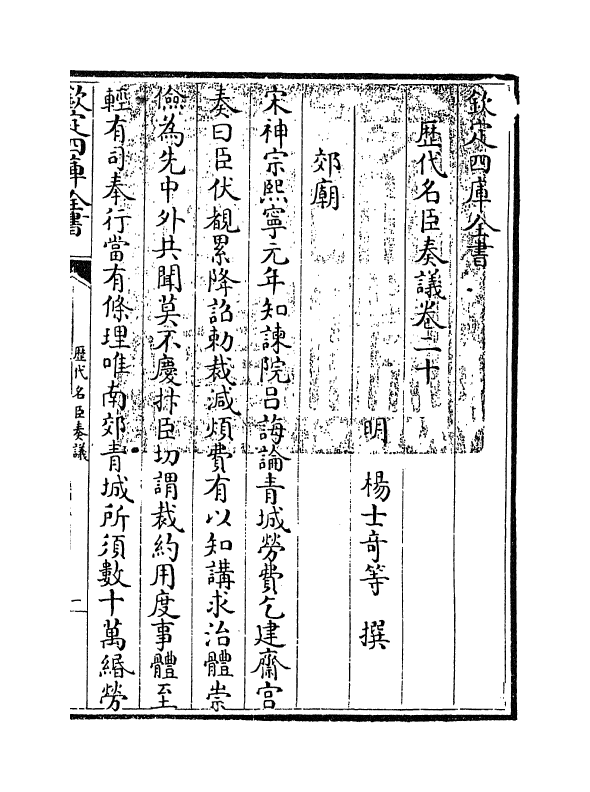 欽定四庫全書
歴代名臣奏議卷二十
明 楊士竒等 撰
郊廟
宋神宗熙寧元年知諫院吕誨論青城勞費乞建齋宫
奏曰臣伏覩累降詔勅裁減煩費有以知講求治體崇
儉為先中外共聞莫不慶抃臣切謂裁約用度事體至
輕有司奉行當有條理唯南郊青城所須數十萬緡勞
欽定四庫全書
歴代名臣奏議